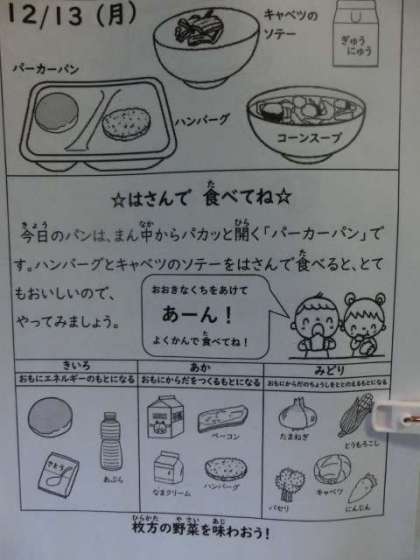 12/13（月）
キャベツの
ソテー
ぎゅう
にゅう
パーカーパン
ハンバーグ
コーンスープ
☆はさんで 食べてね☆
た
きょう なか ひら
今日のパンは、まん中からパカッと開く「パーカーパン」で
た
す。ハンバーグとキャベツのソテーをはさんで食べると、とて
もおいしいので、
やってみましょう。
おおきなくちをあけて
あーん！
た
よくかんで食べてね！
きいろ
おもにエネルギーのもとになる
あか
おもにからだをつくるもとになる
みどり
おもにからだのちょうしをととのえるもとになる
さとう
あぶら
ベーコン
なまクリーム
ハンバーグ
たまねぎ
とうもろこし
パセリ
キャベツ
にんじん
ひらかた やさい あじ
枚方の野菜を味わおう！